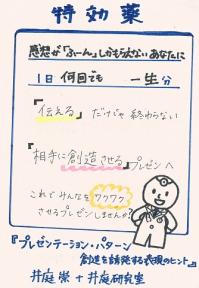 特効薬
感想が「ふーん」しかもらえないあなたに
1日 何回でも 一生分
『伝える』だけじゃ 終わらない
『相手に創造させる』プレゼンへ
これでみんなをワクワク
させるプレゼンしませんか?
『プレゼンテーション・パターン
創造を誘発する表現のヒント』
井庭 崇 + 井庭研究室